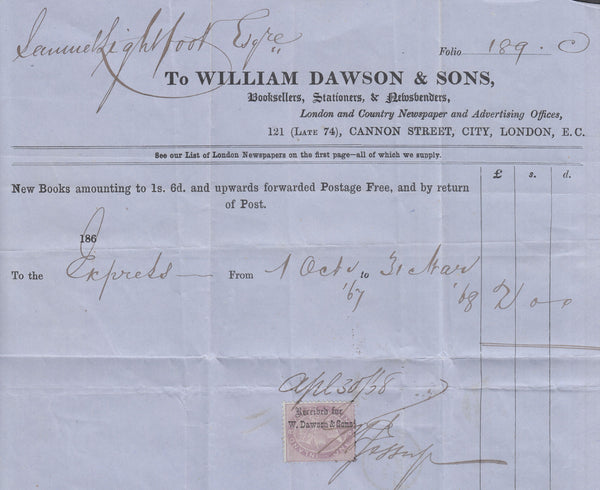 Samuel Lightfoot Esqre
Folio 189. C
To WILLIAM DAWSON & SONS,
Booksellers, Stationers, & Newsvenders,
London and Country Newspaper and Advertising Offices,
121 (LATE 74), CANNON STREET, CITY, LONDON, E.C.
See our List of London Newspapers on the first page—all of which we supply.
£ s. d.
New Books amounting to 1s. 6d. and upwards forwarded Postage Free, and by return
of Post.
186
To the Express From 1 Octr to 31 Mar
'67 '68 2 0 0
Apl 30/68
Received for
W. Dawson & Sons
Jessup